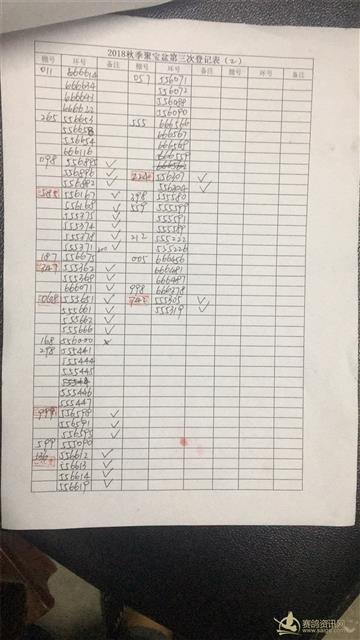 2018秋季聚宝盆第三次登记表（2）
棚号 环号 备注 棚号 环号 备注 棚号 环号 备注
011 666614 057 556071
666634 556072
666643 556088
666622 556090
265 555 666566
555658 666567
555654 666568
666116
098 556885 ✓
556886 ✓ 556207 ✓
556882 ✓ 556204 ✓
556167 ✓ 398 555580
556168 ✓ 559 555599
555375 ✓ 555591
555374 ✓ 555589
555378 ✓ 212 555222
555371 ✓ 555226
187 556675 005 666456
555362 ✓ 666481
555368 ✓ 666487
666071 ✓ 998 666278
555651 ✓ 555305 ✓
555661 ✓ 555319 ✓
555662 ✓
555666 ✓
168 556000 ×
298 555441
555444
555445
555446
555447
556599 ✓
556591 ✓
556595 ✓
599 555090
136 556612 ✓
556613 ✓
556614 ✓
556619 ✓
赛鸽资讯网
www.saige.com